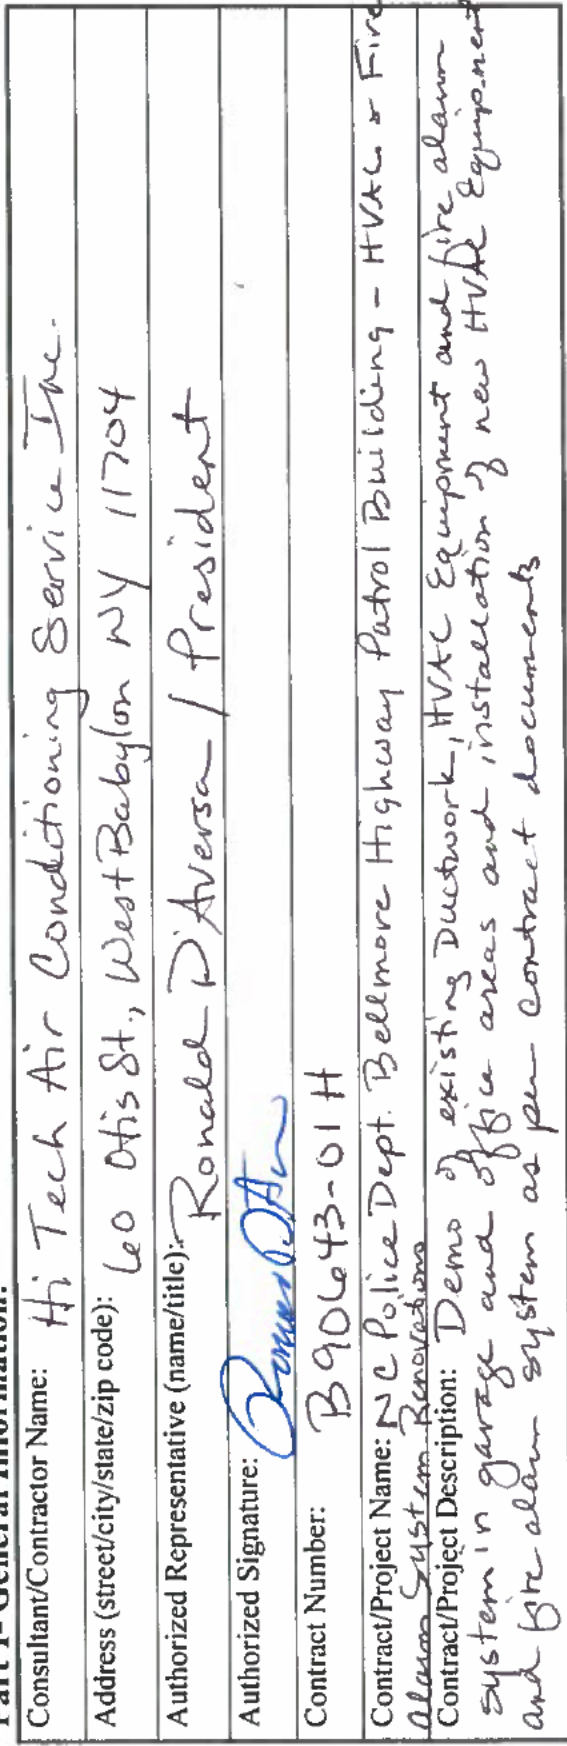 Part 1- General Information:
Consultant/Contractor Name: Hi Tech Air Conditioning Service Inc.
Address (street/city/state/zip code): 60 Otis St., West Babylon NY 11704
Authorized Representative (name/title): Ronald D'Aversa / President
Authorized Signature:
Contract Number: B90643-01H
Contract/Project Name: NC Police Dept. Bellmore Highway Patrol Building - HVAC & Fire
Alarm System Renovations
Contract/Project Description: Demo of existing Ductwork, HVAC Equipment and fire alarm
system in garage and office areas and installation of new HVAC Equipment
and fire alarm system as per contract documents